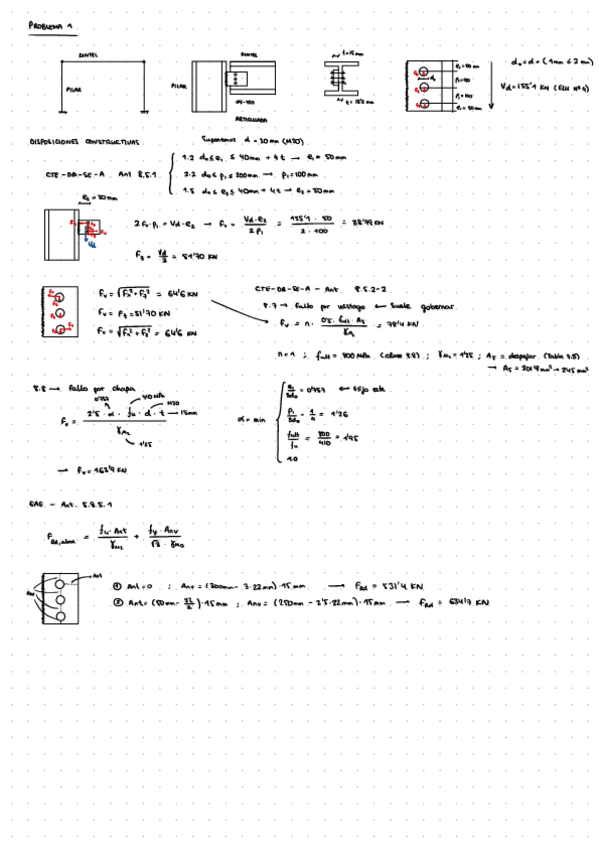 PROBLEMA 1
DINTEL
PILAR
DINTEL
PILAR
ARTICULADA
t=15mm
e₁=50mm
p₁=100
p₁=100
e₁=50mm
d₀=d+(1mm ó 2mm)
Vd=155'1 KN (ELU Nº4)
DISPOSICIONES CONSTRUCTIVAS
Suponemos d=20mm (M20)
CTE-DB-SE-A. Art 8.5.1
1.2 d₀ ≤ e₁ ≤ 40mm + 4t → e₁=50mm
2.2 d₀ ≤ p₁ ≤ 200mm → p₁=100mm
1.5 d₀ ≤ e₂ ≤ 40mm + 4t → e₂=50mm
e₂=50mm
2Fₓ·p₁ = Vd·e₂ → Fₓ = Vd·e₂ / 2p₁ = 155'1·50 / 2·100 = 38'78 KN
F_z = Vd/3 = 51'70 KN
Fv = √(Fₓ²+F_z²) = 64'6 KN
Fv = F_z = 51'70 KN
Fv = √(Fₓ²+F_z²) = 64'6 KN
CTE-DB-SE-A - Art. 8.5.2-2
8.7 → Fallo por vástago ← Suele gobernar.
Fv = n· 0'5·fult·As / γM2 = 78'4 KN
n=1 ; fult=800 MPa (clase 8.8) ; γM2=1'25 ; As = despejar (Tabla 7.3)
→ As = 201'9mm² → 245mm²
8.8 → Fallo por chapa
0'757
410 MPa
M20
Fv = 2'5·α·fu·d·t / γM2
15mm
1'25
α = min
e₁/3d₀ = 0'757 ← Elijo este
p₁/3d₀ - 1/4 = 1'26
fult/fu = 800/410 = 1'95
1.0
→ Fv = 163'9 KN
EAE. - Art. 58.5.1
F Rd,alma = fu·Ant / γM2 + fy·Anv / √3·γM0
Ant
Anv
① Ant=0 ; Anv=(300mm - 3·22mm)·15mm → FRd = 531'4 KN
② Ant=(50mm - 22/2)·15mm ; Anv=(250mm - 2'5·22mm)·15mm → FRd = 634'7 KN